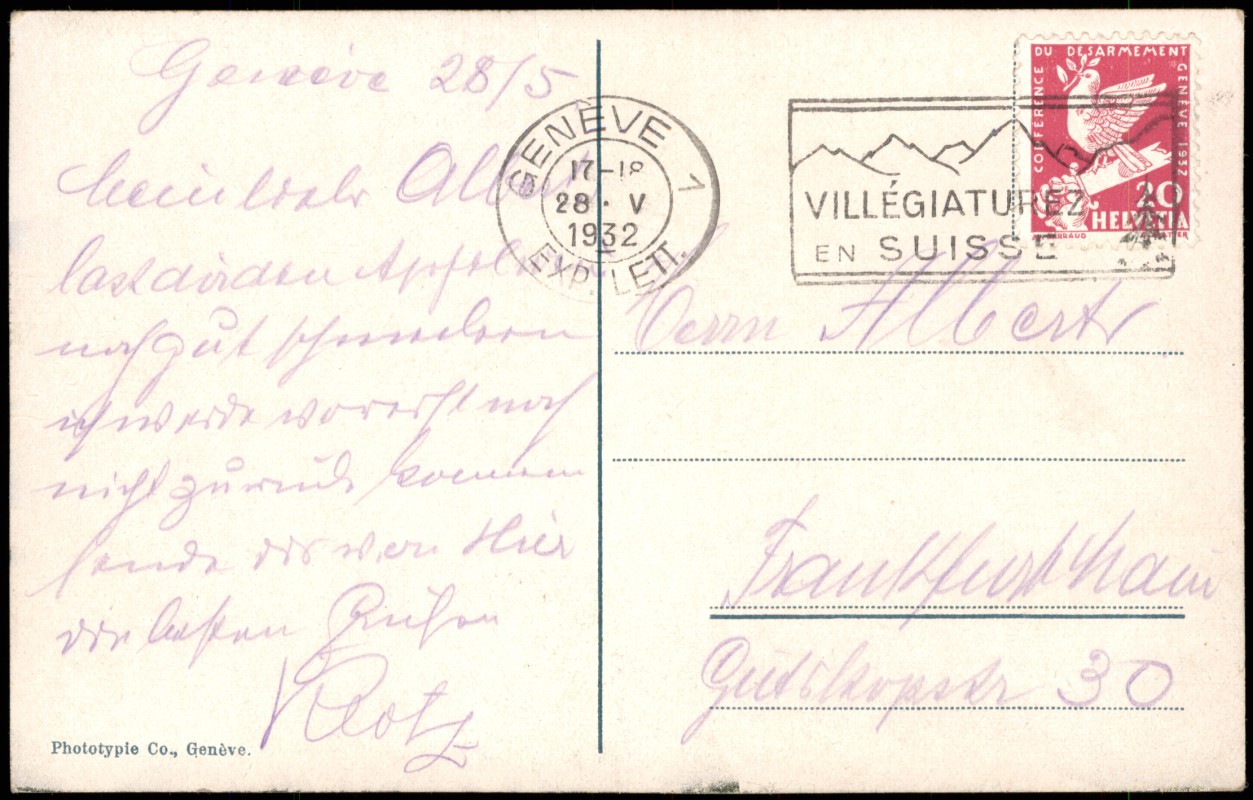 Genève 28/5
Mein lieber Albert
lass dir den Apfelwein
noch gut schmecken
ich werde vorerst noch
nicht zurück kommen
sende dir von Hier
die besten Grüßen
Phototypie Co., Genève.
GENÈVE 1
17-18
28. V
1932
EXP. LETT.
VILLÉGIATUREZ
EN SUISSE
CONFÉRENCE DU DÉSARMEMENT GENÈVE 1932
20
HELVETIA
Herrn Albert
Frankfurt Main
30